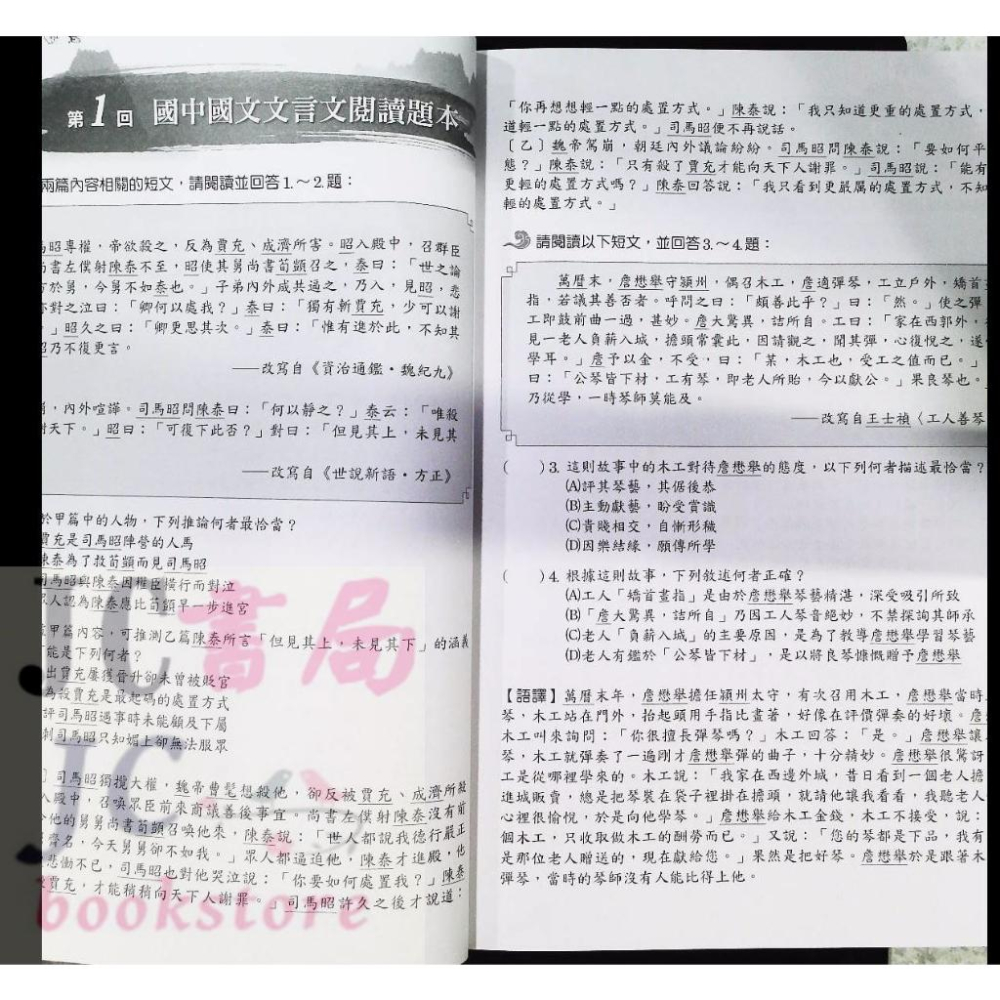 第1回 國中國文文言文閱讀題本
兩篇內容相關的短文,請閱讀並回答1.~2.題:
馬昭專權,帝欲殺之,反為賈充、成濟所害。昭入殿中,召群臣
尚書左僕射陳泰不至,昭使其舅尚書荀顗召之,泰曰:「世之論
方於舅,今舅不如泰也。」子弟內外咸共逼之,乃入,見昭,悲
亦對之泣曰:「卿何以處我?」泰曰:「獨有斬賈充,少可以謝
。」昭久之曰:「卿更思其次。」泰曰:「惟有進於此,不知其
昭乃不復更言。
——改寫自《資治通鑑・魏紀九》
崩,內外喧譁。司馬昭問陳泰曰:「何以靜之?」泰云:「唯殺
謝天下。」昭曰:「可復下此否?」對曰:「但見其上,未見其
——改寫自《世說新語・方正》
於甲篇中的人物,下列推論何者最恰當?
賈充是司馬昭陣營的人馬
陳泰為了救荀顗而見司馬昭
司馬昭與陳泰因權臣橫行而對泣
眾人認為陳泰應比荀顗早一步進宮
甲篇內容,可推測乙篇陳泰所言「但見其上,未見其下」的涵義
能是下列何者?
出賈充屢獲晉升卻未曾被貶官
為殺賈充是最起碼的處置方式
評司馬昭遇事時未能顧及下屬
刺司馬昭只知媚上卻無法服眾
司馬昭獨攬大權,魏帝曹髦想殺他,卻反被賈充、成濟所殺
入殿中,召喚眾臣前來商議善後事宜。尚書左僕射陳泰沒有前
令他的舅舅尚書荀顗召喚他來,陳泰說:「世人都說我德行嚴正
齊名,今天舅舅卻不如我。」眾人都逼迫他,陳泰才進殿,他
悲慟不已,司馬昭也對他哭泣說:「你要如何處置我?」陳泰
賈充,才能稍稍向天下人謝罪。」司馬昭許久之後才說道:
「你再想想輕一點的處置方式。」陳泰說:「我只知道更重的處置方式,
道輕一點的處置方式。」司馬昭便不再說話。
〔乙〕魏帝駕崩,朝廷內外議論紛紛。司馬昭問陳泰說:「要如何平
態?」陳泰說:「只有殺了賈充才能向天下人謝罪。」司馬昭說:「能有
更輕的處置方式嗎?」陳泰回答說:「我只看到更嚴厲的處置方式,不知
輕的處置方式。」
請閱讀以下短文,並回答3.~4.題:
萬曆末,詹懋舉守潁州,偶召木工,詹適彈琴,工立戶外,矯首畫
指,若議其善否者。呼問之曰:「頗善此乎?」曰:「然。」使之彈
工即鼓前曲一過,甚妙。詹大驚異,詰所自。工曰:「家在西郭外,
見一老人負薪入城,擔頭常囊此,因請觀之,聞其彈,心復悅之,遂
學耳。」詹予以金,不受,曰:「某,木工也,受工之值而已。」
曰:「公琴皆下材,工有琴,即老人所貽,今以獻公。」果良琴也。
乃從學,一時琴師莫能及。
——改寫自王士禎〈工人善琴
( )3. 這則故事中的木工對待詹懋舉的態度,以下列何者描述最恰當?
(A)評其琴藝,其倨後恭
(B)主動獻藝,盼受賞識
(C)貴賤相交,自慚形穢
(D)因樂結緣,願傳所學
( )4. 根據這則故事,下列敘述何者正確?
(A)工人「矯首畫指」是由於詹懋舉琴藝精湛,深受吸引所致
(B)「詹大驚異,詰所自」乃因工人琴音絕妙,不禁探詢其師承
(C)老人「負薪入城」的主要原因,是為了教導詹懋舉學習琴藝
(D)老人有鑑於「公琴皆下材」,是以將良琴慷慨贈予詹懋舉
【語譯】萬曆末年,詹懋舉擔任潁州太守,有次召用木工,詹懋舉當時
琴,木工站在門外,抬起頭用手指比畫著,好像在評價彈奏的好壞。詹
木工叫來詢問:「你很擅長彈琴嗎?」木工回答:「是。」詹懋舉讓
琴,木工就彈奏了一遍剛才詹懋舉彈的曲子,十分精妙。詹懋舉很驚訝
工是從哪裡學來的。木工說:「我家在西邊外城,昔日看到一個老人擔
進城販賣,總是把琴裝在袋子裡掛在擔頭,就請他讓我看看,我聽老人
心裡很愉悅,於是向他學琴。」詹懋舉給木工金錢,木工不接受,說:
個木工,只收取做木工的酬勞而已。」又說:「您的琴都是下品,我有
是那位老人贈送的,現在獻給您。」果然是把好琴。詹懋舉於是跟著木
彈琴,當時的琴師沒有人能比得上他。
JC書局
JC
bookstore